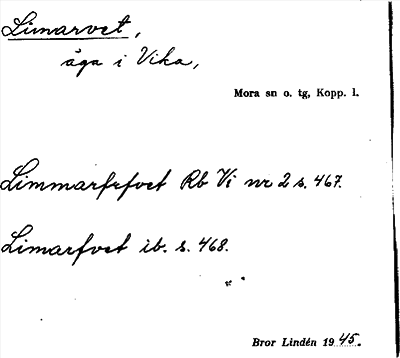 Limarvet,
äga i Vika,
Mora sn o. tg, Kopp. l.
Limmarfrfvet Rb Vi nr 2 s. 467.
Limarfvet ib. s. 468.
Bror Lindén 1945.